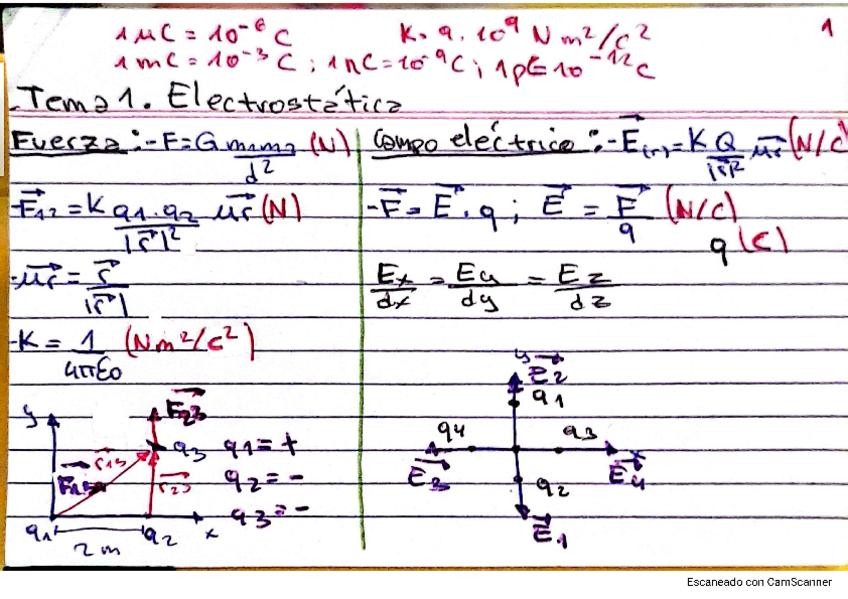 1 μC = 10⁻⁶ C K = 9.10⁹ N m²/c² 1
1 mC = 10⁻³ C ; 1 nC = 10⁻⁹ C ; 1 pC = 10⁻¹² C
Tema 1. Electrostática
Fuerza: - F = G m₁m₂/d² (N)
- F⃗₁₂ = K q₁·q₂/|r⃗|² u⃗r (N)
- u⃗r = r⃗/|r⃗|
- K = 1/4πε₀ (Nm²/c²)
y F⃗₂₃
r⃗₁₃ q₃ q₁ = +
F⃗₁₃ r⃗₂₃ q₂ = -
q₃ = -
q₁ q₂ x
2 m
Campo eléctrico: - E⃗(r) = K Q/|r⃗|² u⃗r (N/C)
- F⃗ = E⃗ · q ; E⃗ = F⃗/q (N/C)
q (C)
Ex/dx = Ey/dy = Ez/dz
y E⃗₂
q₁
q₄ q₃ x
E⃗₃ E⃗₄
q₂
E⃗₁
Escaneado con CamScanner